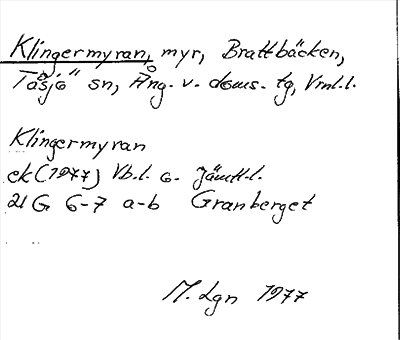 Klingermyran, myr, Brattbäcken,
Tåsjö sn, Ång. v. doms. tg, Vrnl.l.
Klingermyran
ek (1977) Vb.l. o. Jämtl.l.
21 G 6-7 a-b Granberget
M. Lgn 1977